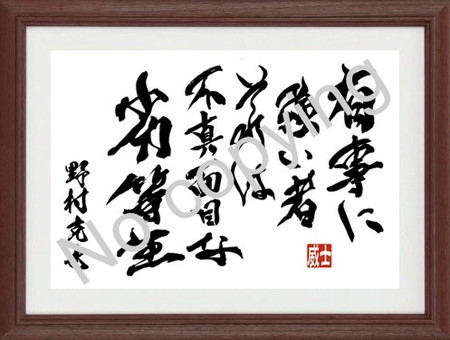 有事に
強い者
それは
不真面目な
劣等生
野村克也
威士
No copying